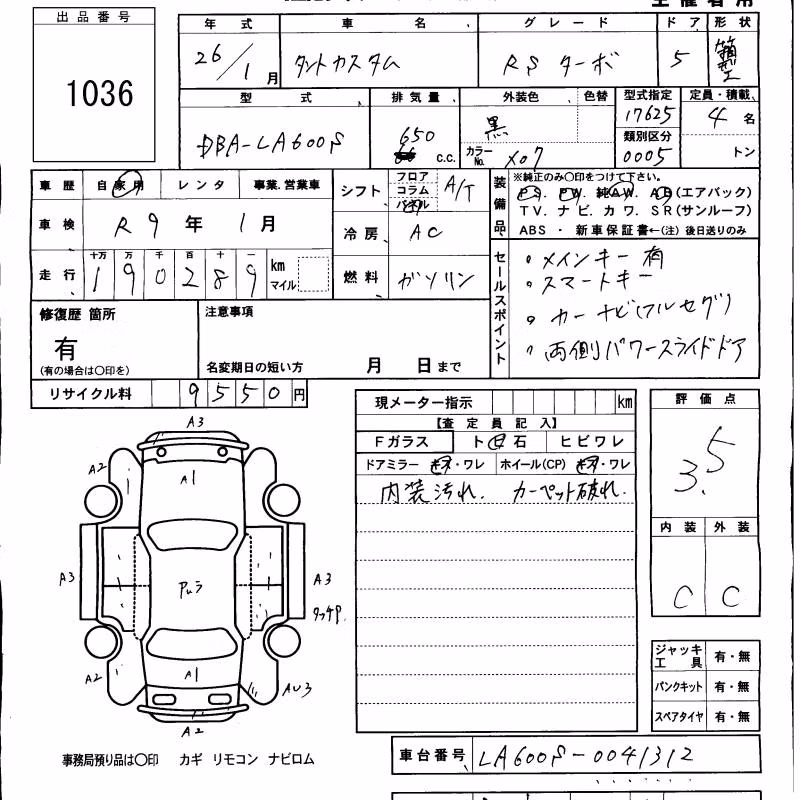 出品番号
1036
年式 車名 グレード ドア 形状
26/1月 タントカスタム RSターボ 5 箱型
型式 排気量 外装色 色替 型式指定 定員・積載
DBA-LA600S 650 C.C. 黒 カラーNo. X07 17625 4名
類別区分 0005 トン
車歴 自家用 レンタ 事業.営業車
シフト フロア コラム A/T
装備品 ※純正のみ○印をつけて下さい。
PS. PW. 純AW. AB(エアバック)
TV. ナビ. カワ. SR(サンルーフ)
ABS ・ 新車保証書←(注)後日送りのみ
車検 R9年1月
冷房 AC
走行 十万 万 千 百 十 一
190289 km マイル
燃料 ガソリン
セールスポイント
・メインキー有
・スマートキー
・カーナビ(フルセグ)
・両側パワースライドドア
修復歴 箇所
有
(有の場合は○印を)
注意事項
名変期日の短い方 月 日まで
リサイクル料 9550円
現メーター指示 km
【査定員記入】
Fガラス ト 石 ヒビワレ
ドアミラー キズ・ワレ ホイール(CP) キズ・ワレ
内装汚れ. カーペット破れ.
評価点
3.5
内装 外装
C C
A3
A2
A1
A3
Pυラ
A3
タッチP.
A2
A1
AU3
A2
ジャッキ工具 有・無
パンクキット 有・無
スペアタイヤ 有・無
事務局預り品は○印 カギ リモコン ナビロム
車台番号 LA600S-0041312